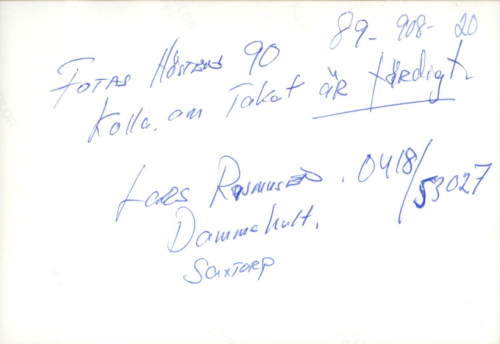 89-908-20
FOTAS HÖSTENS 90
Kolla. om Taket är färdigt
Lars RASMUSSEN. 0418/53027
Dammehult.
SAXTORP